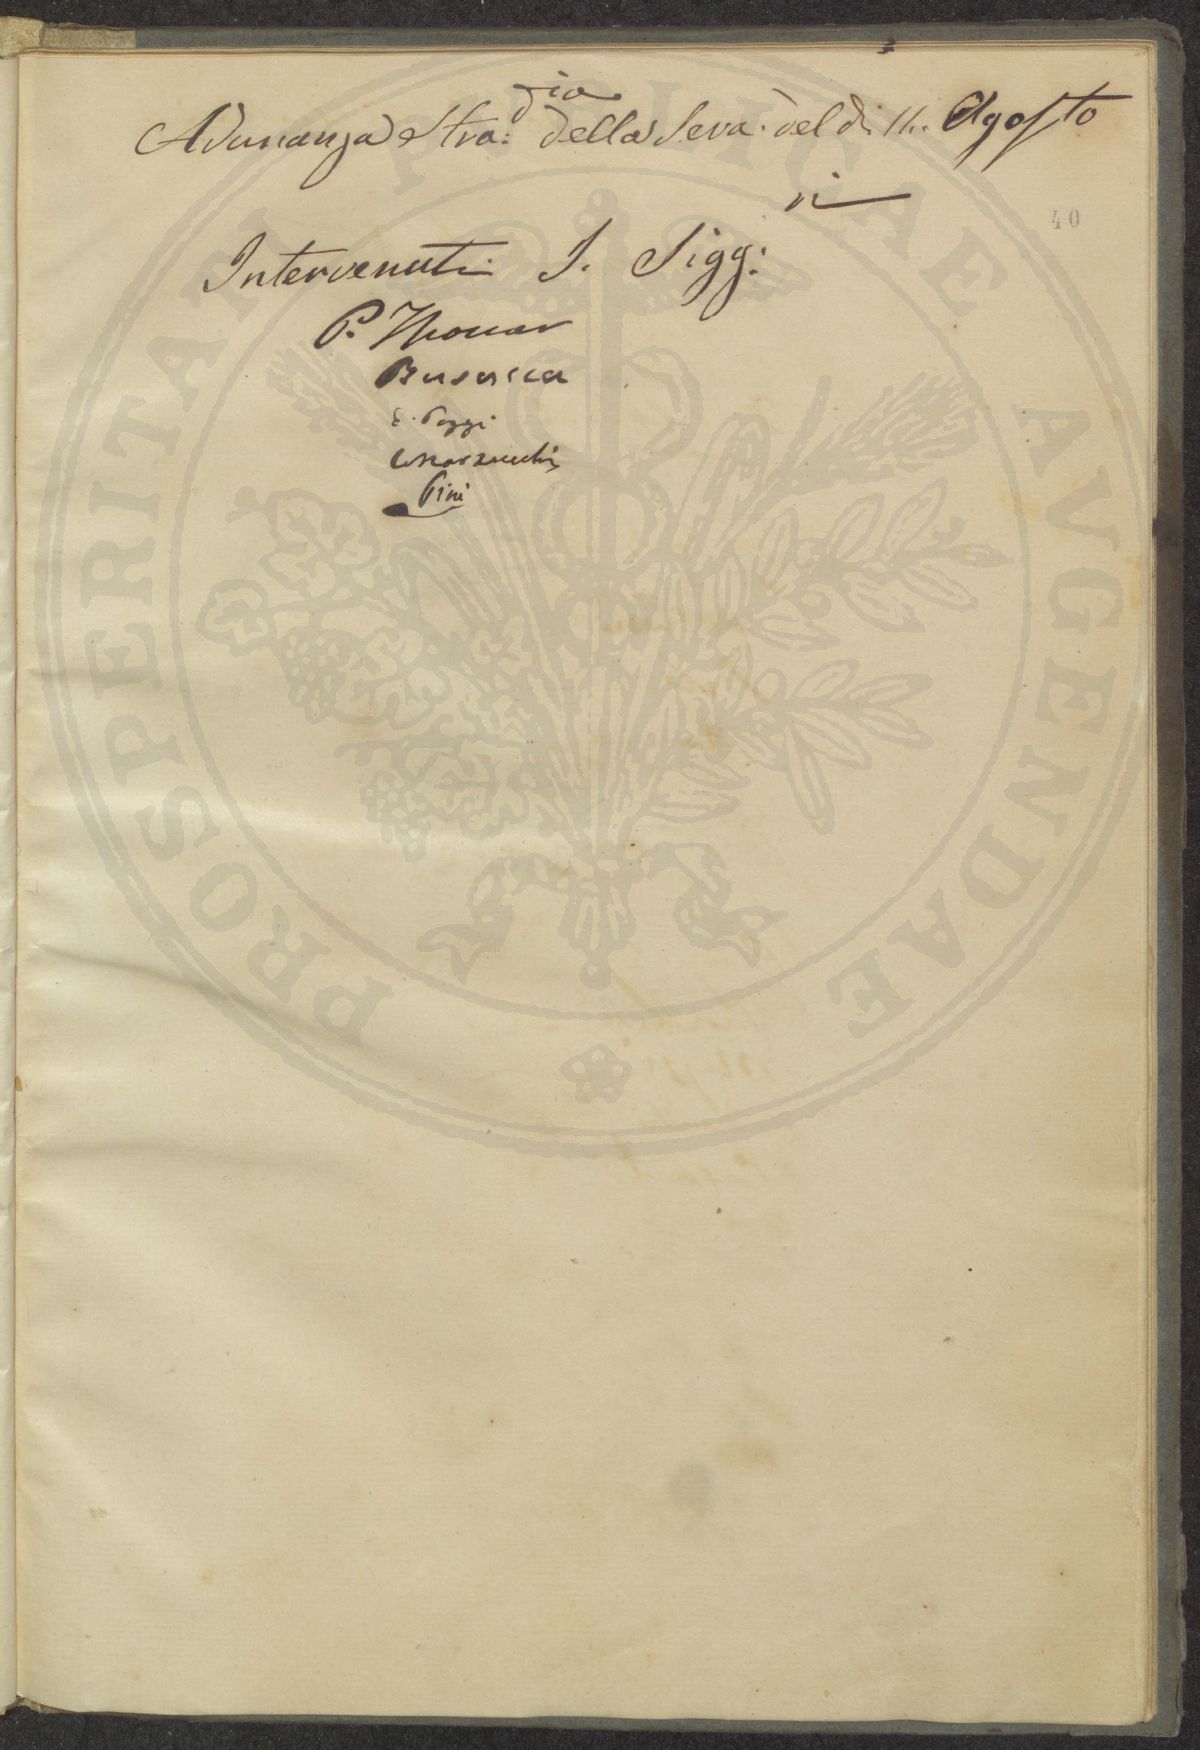 Adunanza Stra:dia della Sera del dì 11. Agosto
40
Intervenuti I. Sigg:ri
P. Thouar
Busacca
E. Poggi
C. Marzucchi
Pini
PROSPERITATI PUBLICAE AVGENDAE